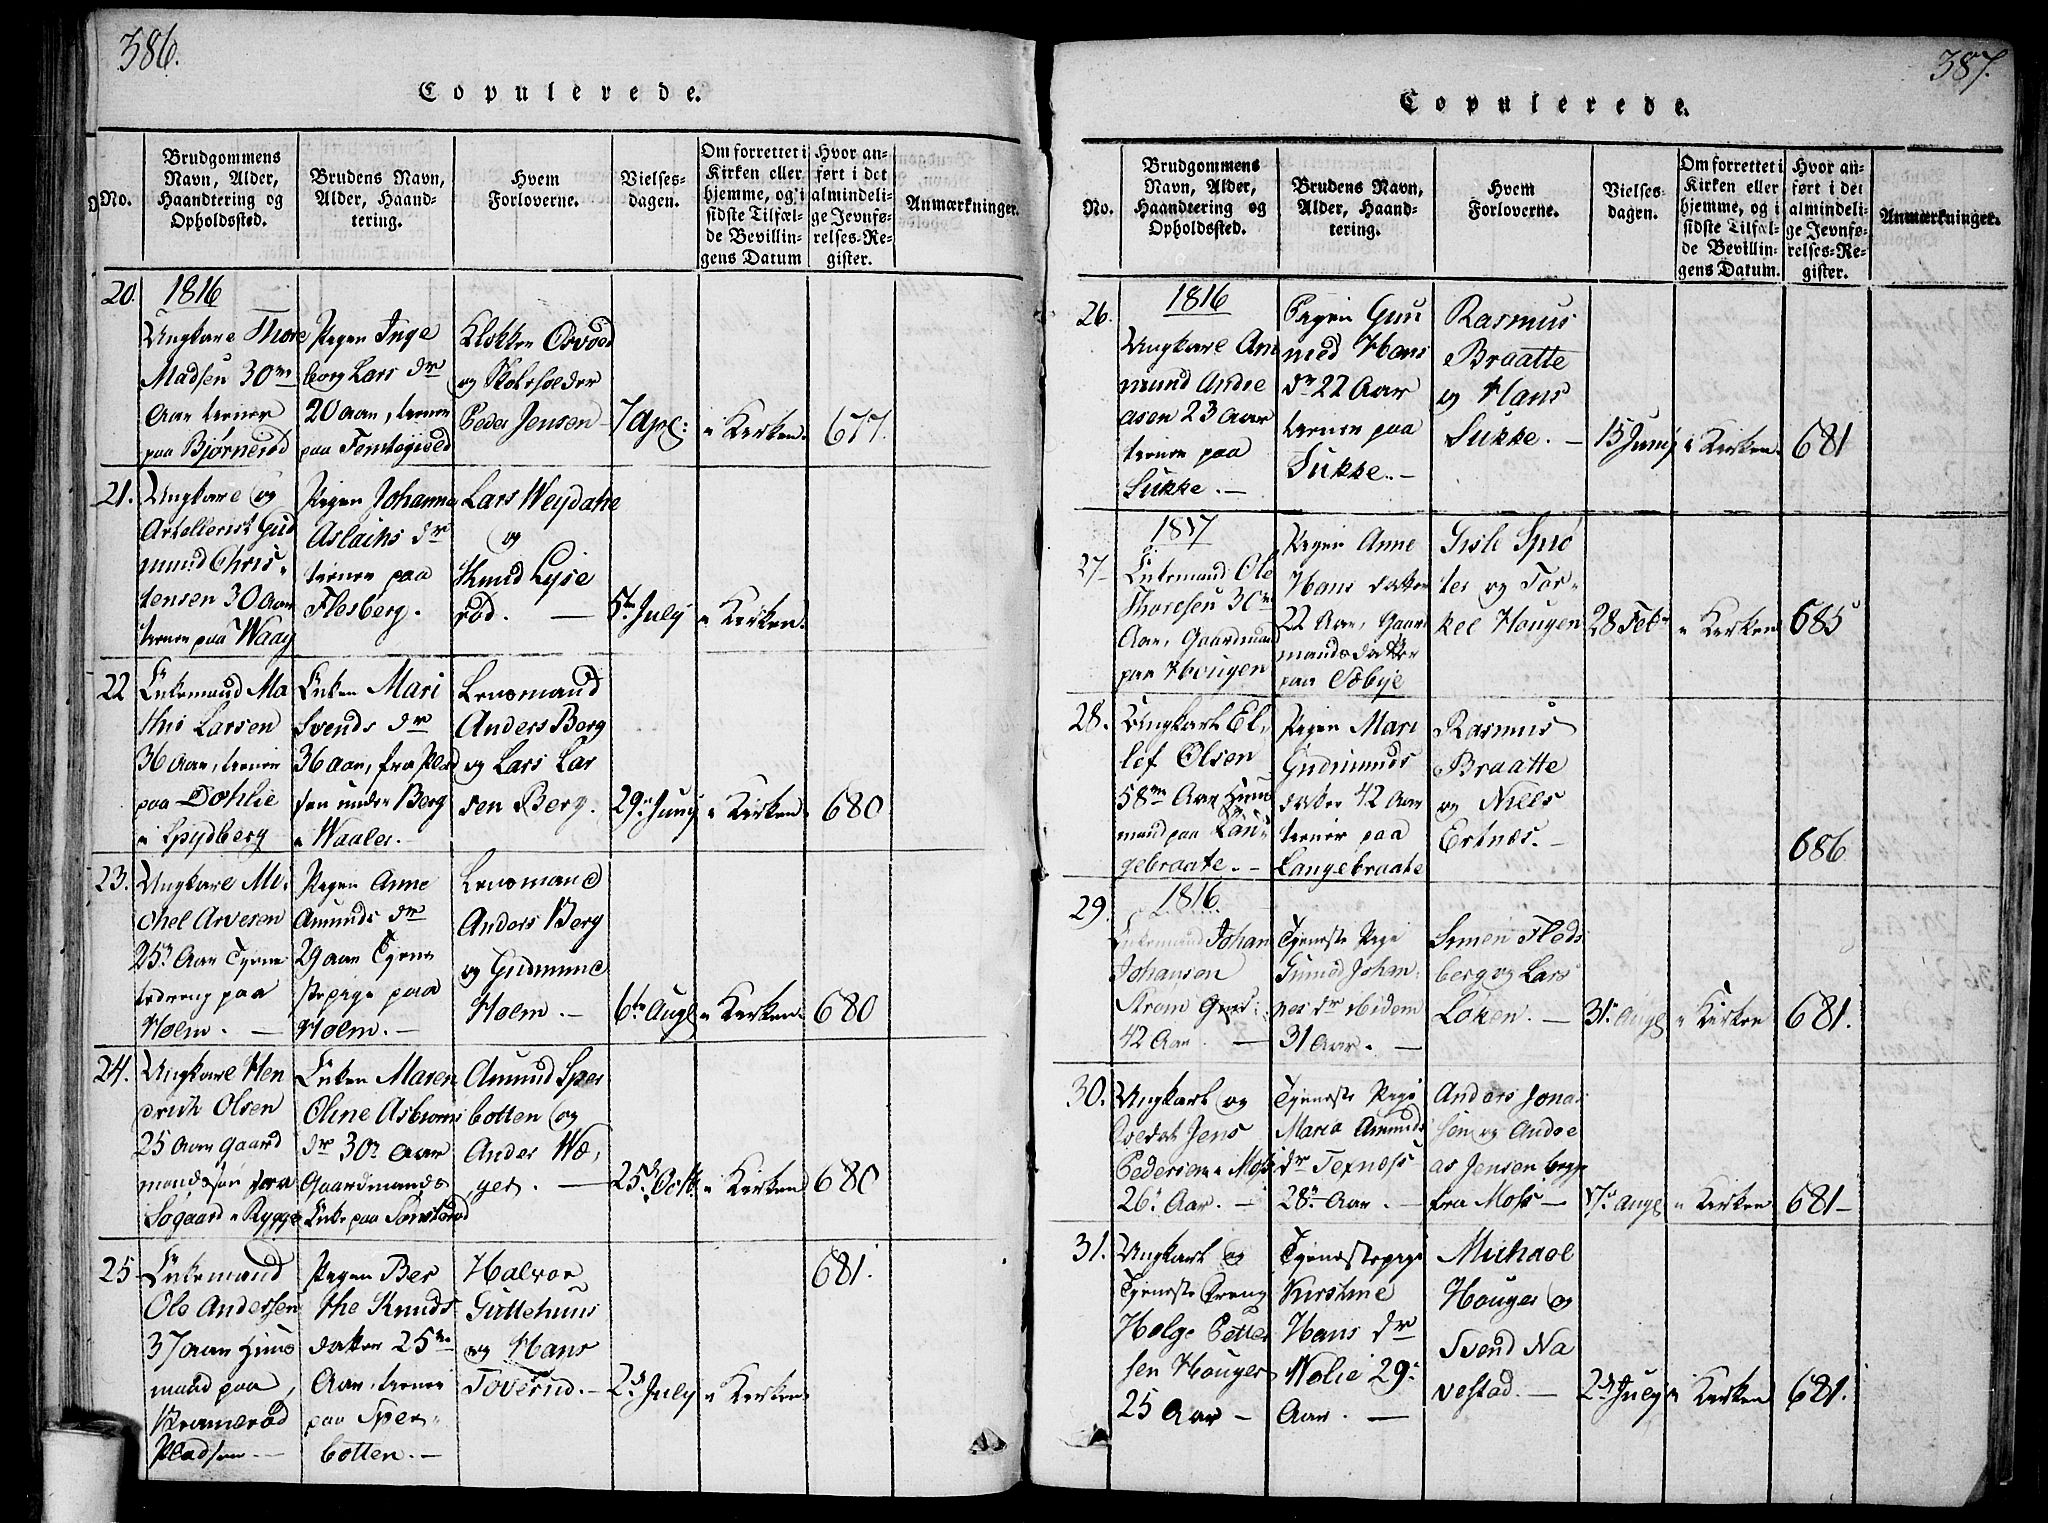 386.
Copulerede.
No.
Brudgommens
Navn, Alder,
Haandtering og
Opholdssted.
Brudens Navn,
Alder, Haand-
tering.
Hvem
Forloverne.
Vielses-
dagen.
Om forrettet i
Kirken eller
hjemme, og i
sidste Tilfæl-
de Bevillin-
gens Datum
Hvor an-
ført i det
almindeli-
ge Jevnfø-
relses-Re-
gister.
Anmærkninger.
20.
1816
Ungkarl Thore
Madsen 30
Aar tiener
paa Bjørnerød
Pigen Inge
borg Lars dr
20 aar, tiener
paa
Klokker
og Skoleholder
Peder Jensen
7 Apl:
i Kirken.
677.
21.
Ungkarl og
Artellerist Gud
mund Chris-
tensen 30 Aar
tiener paa Waag
Pigen Johanne
Aslachs dr
tiener paa
Flesberg.
Lars Weydahl
og
Knud Lyse
rød. —
5te July
i Kirken.
22
Enkemand Ma
this Larsen
36 Aar, tiener
paa Dohlie
i Spydberg
Enken Mari
Svends dr
36 aar, fra Plad
sen under Berg
i Waaler.
Lensmand
Anders Berg
og Lars Lar
sen Berg.
29 Juny
i Kirken
680
23.
Ungkarl Mi-
chel Arvesen
25 Aar Tiene
stedreng paa
Holm. —
Pigen Anne
Amunds dr
29 aar Tiene
stepige paa
Holm. —
Lensmand
Anders Berg
og Gudmund
Holm. —
6te Augl
i Kirken.
680
24.
Ungkarl Hen
drich Olsen
25 Aar gaard
mandssøn fra
Søgaard i Rygge
Enken Maren
Oline Asbiørns
dr 30 Aar
Gaardmands
Enke paa
Amund Sper
botten og
Ander Wæ-
ger. —
25 Octb
i Kirken
680
25
Enkemand
Ole Andersen
37 aar Huus
mand paa
Kramerød
Pladsen —
Pigen Ber
the Knuds
datter 25
Aar, tiener
paa Sper-
botten. —
Halvor
Guttehuus
og Hans
Toverud. —
2d July
i Kirken
681.
387.
Copulerede.
No.
Brudgommens
Navn, Alder,
Haandtering og
Opholdssted.
Brudens Navn,
Alder, Haand-
tering.
Hvem
Forloverne.
Vielses-
dagen.
Om forrettet i
Kirken eller
hjemme, og i
sidste Tilfæl-
de Bevillin-
gens Datum.
Hvor an-
ført i det
almindeli-
ge Jevnfø-
relses-Re-
gister.
Anmærkninger.
26.
1816
Ungkarl Am
mund Andre
asen 23 Aar
tiener paa
Sukke. —
Pigen Gun
med Hans
dr 22 Aar
tiener paa
Sukke. —
Rasmus
Braatte
og Hans
Sukke. —
15 Juny
i Kirken.
681
27
1817
Enkemand Ole
Thoresen 30
Aar, Gaardmand
paa Hougen
Pigen Anne
Hans datter
22 Aar, Gaard
mandsdatter
paa Sæbye
Gisle Sprø
ter og Tor-
kel Hougen
28 Feb
i Kirken
685
28.
Ungkarl El-
lef Olsen
58 Aar Huus
mand paa Lan-
gebraate. —
Pigen Mari
Gudmunds
datter 42 Aar
tiener paa
Langebraate
Rasmus
Braatte
og Niels
Ertnæs. —
686
29.
1816.
Enkemand Johan
Johansen
Strøm
42 Aar. —
Tjeneste Pige
Gunild Johan-
nes dr ibidem
31 Aar. —
Simen Flods
berg og Lars
Løken. —
31 Augl
i Kirken
681.
30.
Ungkarl og
Soldat Jens
Pedersen i Moss
26 Aar. —
Tjeneste Pige
Maria Amunds
dr Texness
28 Aar. —
Anders Jona
sen og Andre
as Jensen begge
fra Moss —
17 Augl
i Kirken
681 —
31.
Ungkarl og
Tjeneste Dreng
Holge Petter
sen Houger
25 Aar —
Tjenestepige
Kirstine
Hans dr
Wolie 29
Aar. —
Michael
Houger og
Svend Na
vestad. —
2d July
i Kirken
681.